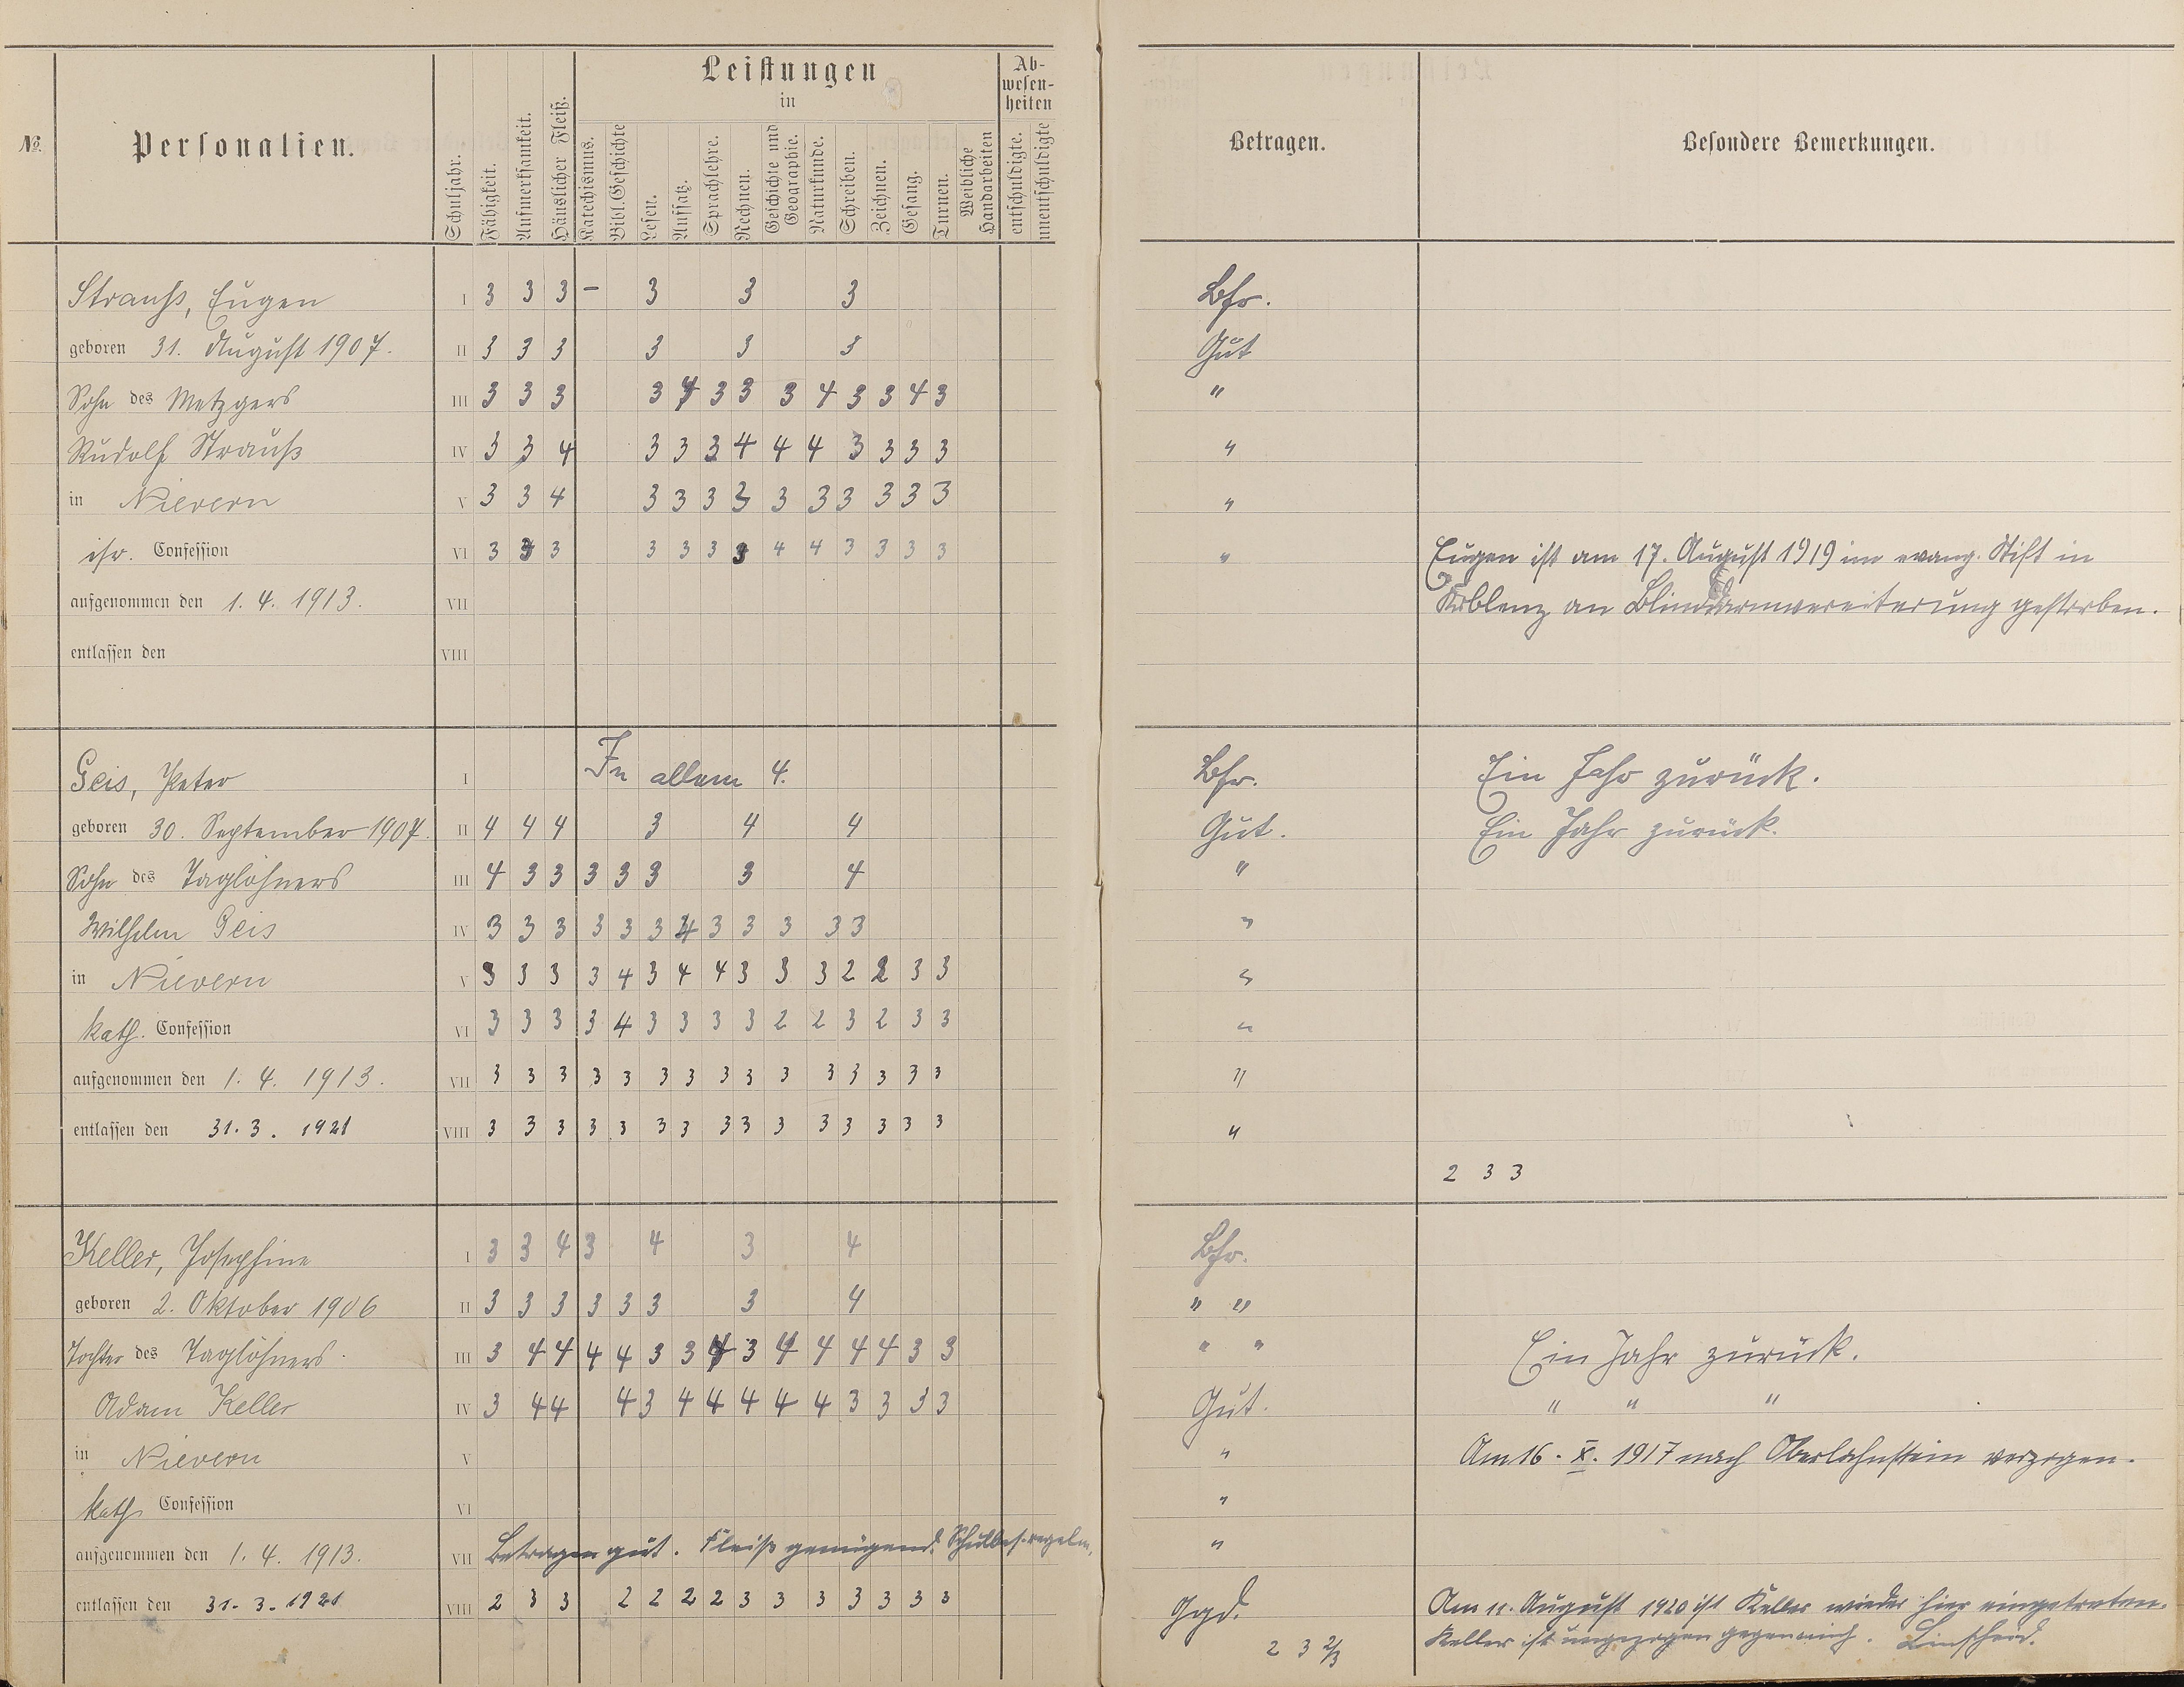 №.
Personalien.
Schuljahr.
Fähigkeit.
Aufmerksamkeit.
Häuslicher Fleiß.
Leistungen
in
Katechismus.
Bibl. Geschichte
Lesen.
Aufsatz.
Sprachlehre.
Rechnen.
Geschichte und Geographie.
Naturkunde.
Schreiben.
Zeichnen.
Gesang.
Turnen.
Weibliche Handarbeiten
Abwesen-
heiten
entschuldigte.
unentschuldigte
Betragen.
Besondere Bemerkungen.
Strauß, Eugen I 3 3 3 – 3 3 3 Lbr.
geboren 31. August 1907. II 3 3 3 3 3 3 Gut
Sohn des Metzgers III 3 3 3 3 4 3 3 3 4 3 3 4 3 "
Rudolf Strauß IV 3 3 4 3 3 3 4 4 4 3 3 3 3 "
in Nievern V 3 3 4 3 3 3 3 3 3 3 3 3 3 "
isr. Confession VI 3 3 3 3 3 3 3 4 4 3 3 3 3 " Eugen ist am 17. August 1919 im evang. Stift in
aufgenommen den 1. 4. 1913. VII Koblenz an Blinddarmvereiterung gestorben.
entlassen den VIII
Geis, Peter I In allem 4. Lbr. Ein Jahr zurück.
geboren 30. September 1907. II 4 4 4 3 4 4 Gut. Ein Jahr zurück.
Sohn des Taglöhners III 4 3 3 3 3 3 3 4 "
Wilhelm Geis IV 3 3 3 3 3 3 4 3 3 3 3 3 "
in Nievern V 3 3 3 3 4 3 4 4 3 3 3 2 2 3 3 "
kath. Confession VI 3 3 3 3 4 3 3 3 3 2 2 3 2 3 3 "
aufgenommen den 1. 4. 1913. VII 3 3 3 3 3 3 3 3 3 3 3 3 3 3 3 "
entlassen den 31. 3. 1921 VIII 3 3 3 3 3 3 3 3 3 3 3 3 3 3 3 "
2 3 3
Keller, Josephine I 3 3 4 3 4 3 4 Lbr.
geboren 2. Oktober 1906 II 3 3 3 3 3 3 3 4 " "
Tochter des Taglöhners III 3 4 4 4 4 3 3 4 3 4 4 4 4 3 3 " " Ein Jahr zurück.
Adam Keller IV 3 4 4 4 3 4 4 4 4 4 3 3 3 3 Gut. " " "
in Nievern V " Am 16. X. 1917 nach Oberlahnstein verzogen.
kath Confession VI "
aufgenommen den 1. 4. 1913. VII Betragen gut. Fleiß genügend. Schulbes. regelm. "
entlassen den 31. 3. 1921 VIII 2 3 3 2 2 2 2 3 3 3 3 3 3 3 Ggd. Am 11. August 1920 ist Keller wieder hier eingetreten.
2 3 2/3 Keller ist ungezogen gegen mich. Linscheid.